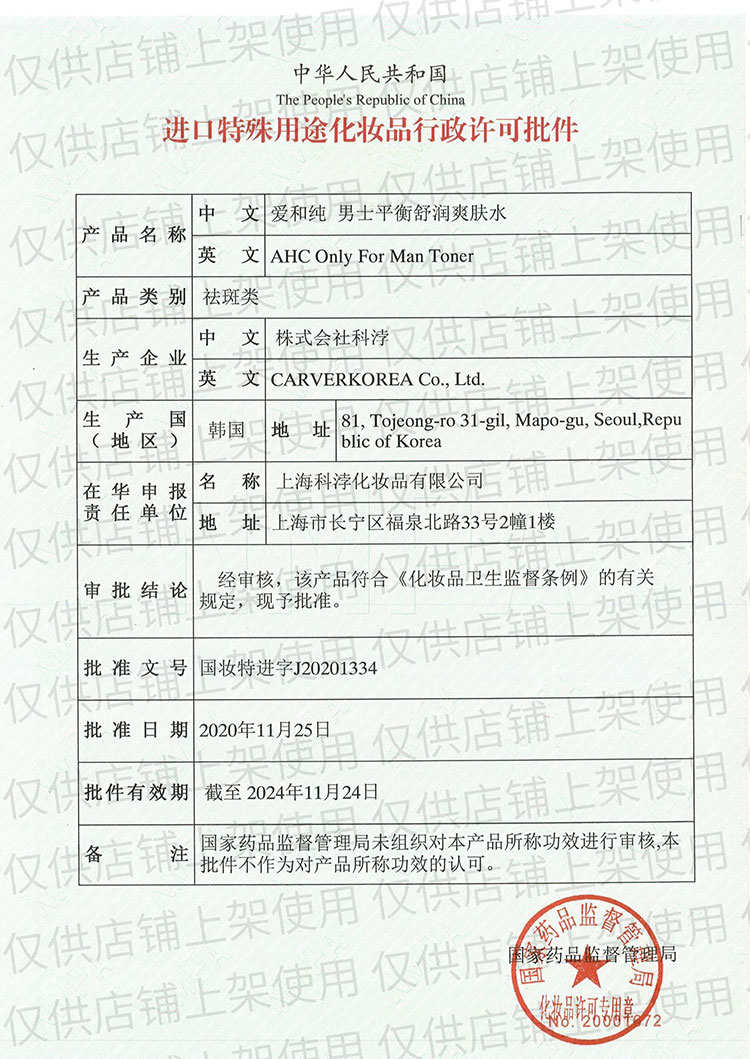 中华人民共和国
The People's Republic of China
进口特殊用途化妆品行政许可批件
产品名称
中文 爱和纯 男士平衡舒润爽肤水
英文 AHC Only For Man Toner
产品类别 祛斑类
生产企业
中文 株式会社科浡
英文 CARVERKOREA Co., Ltd.
生产国
（地区）
韩国
地址
81, Tojeong-ro 31-gil, Mapo-gu, Seoul,Repu
blic of Korea
在华申报
责任单位
名称 上海科浡化妆品有限公司
地址 上海市长宁区福泉北路33号2幢1楼
审批结论
经审核，该产品符合《化妆品卫生监督条例》的有关
规定，现予批准。
批准文号 国妆特进字J20201334
批准日期 2020年11月25日
批件有效期 截至 2024年11月24日
备注
国家药品监督管理局未组织对本产品所称功效进行审核,本
批件不作为对产品所称功效的认可。
国家药品监督管理局
国家药品监督管理局
化妆品许可专用章
No. 20001672
仅供店铺上架使用